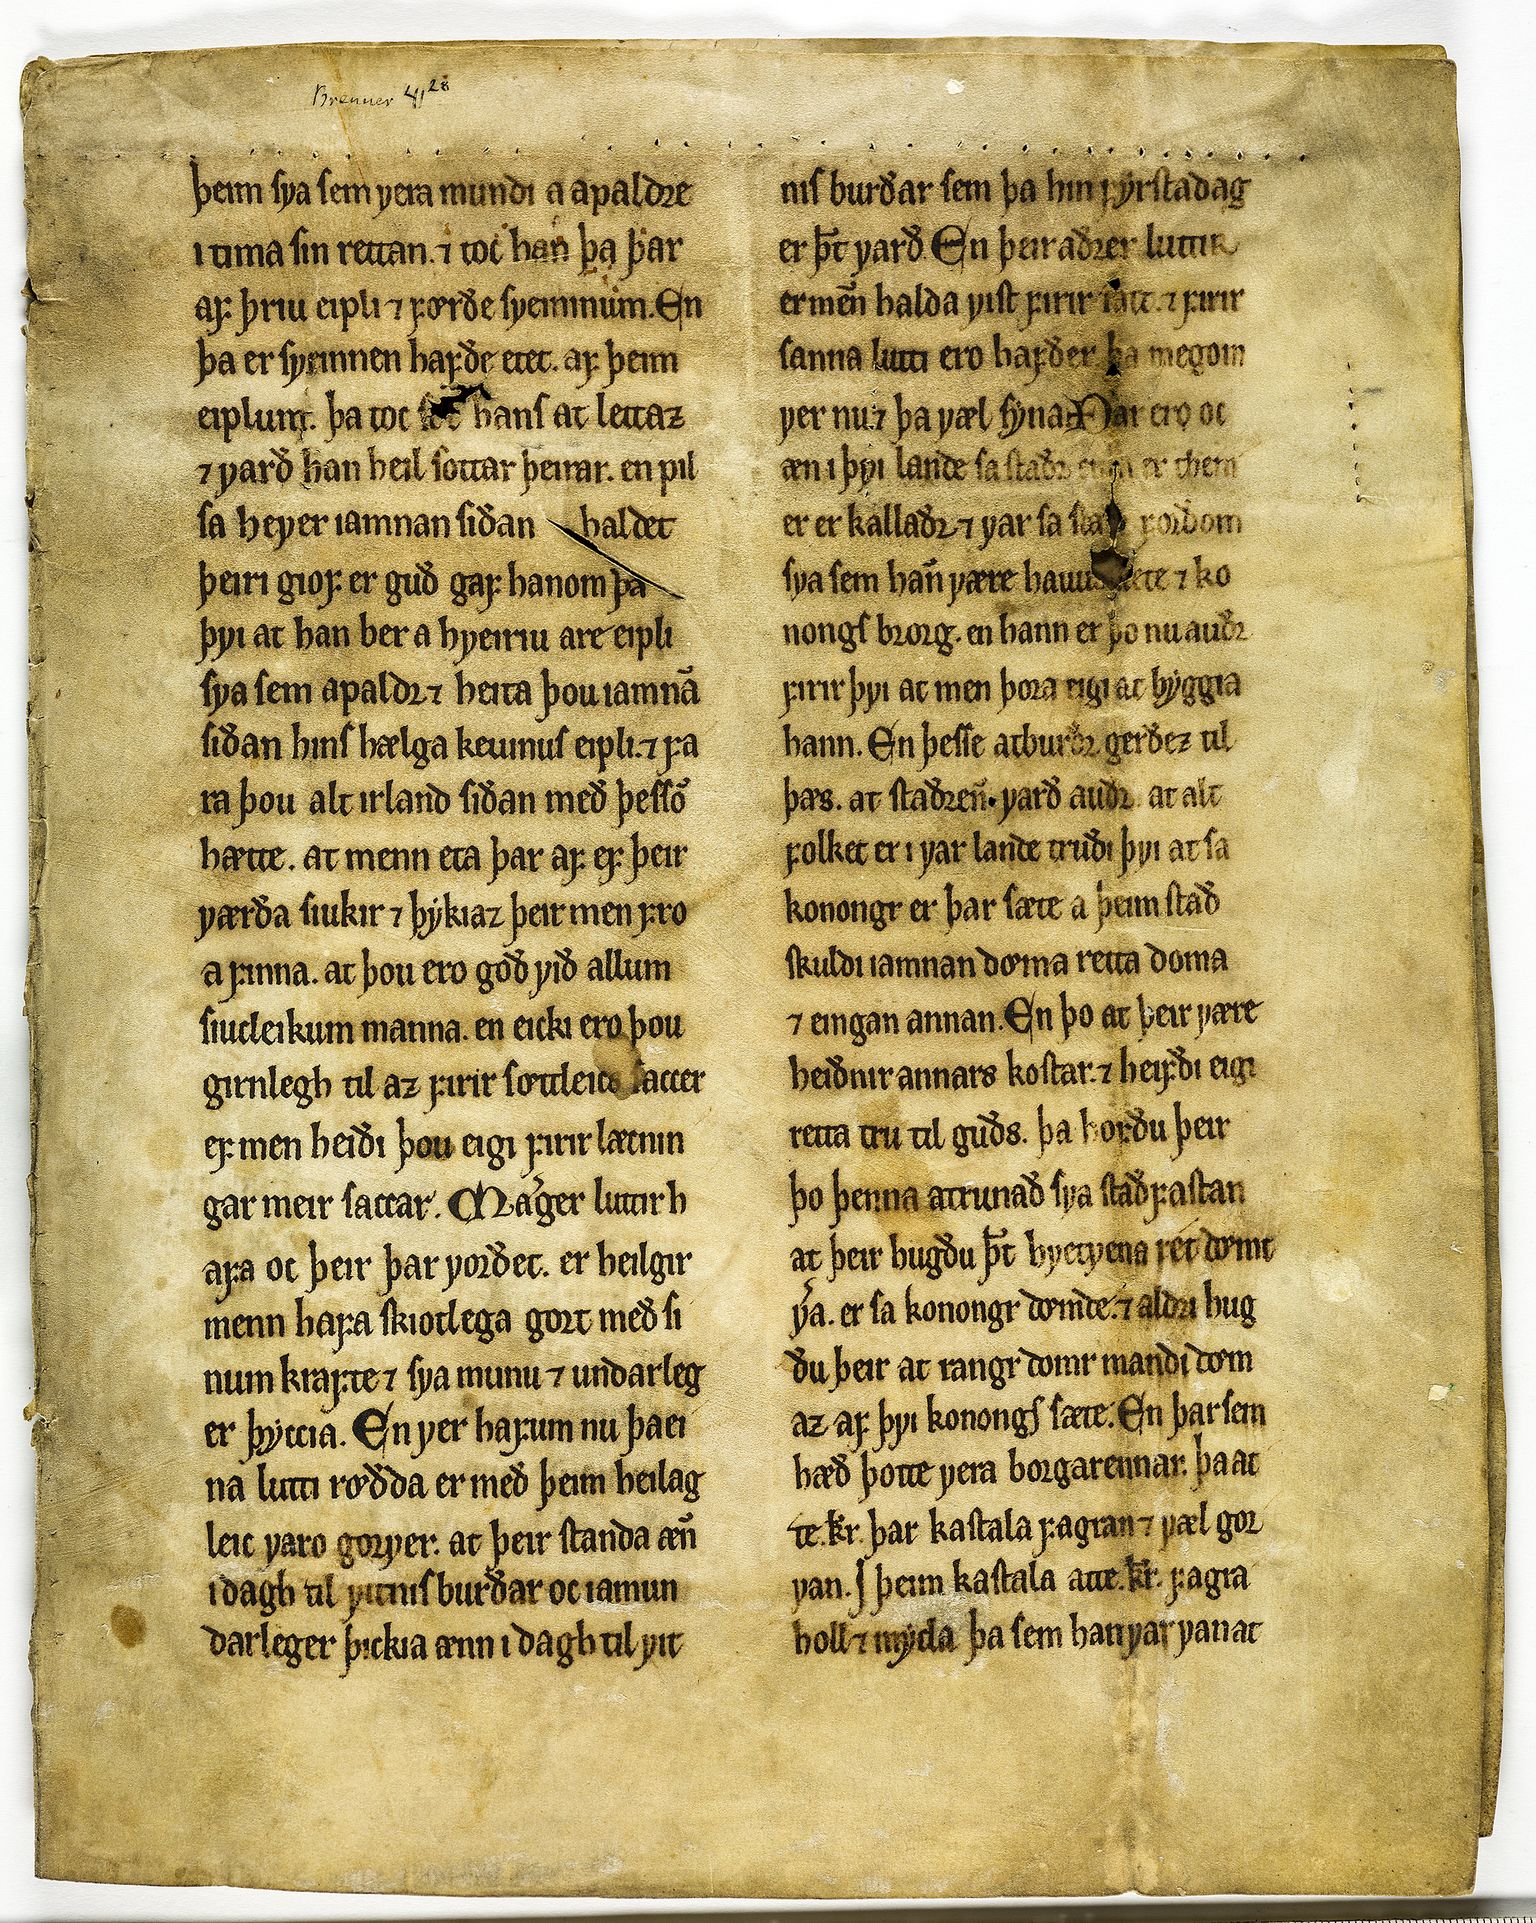 Brenner 41 28
þeim sva sem vera mundi a apaldre
i tima sin rettan. ⁊ toc han þa þar
af þriu eipli ⁊ fœrðe sveininum. En
þa er sveinnen hafðe etet. af þeim
eiplum. þa toc hans at lettaz
⁊ varð han heil sottar þeirar. en pil
sa hever iamnan siðan haldet
þeiri giof er guð gaf hanom þa
þvi at han ber a hveiriu are eipli
sva sem apaldr ⁊ heita þou iamnā
siðan hins hælga keuinus eipli. ⁊ fa
ra þou alt irland siðan með þessō
hætte. at menn eta þar af ef þeir
værða siukir ⁊ þẏkiaz þeir men fro
a finna. at þou ero góð við allum
siucleikum manna. en eicki ero þou
girnlegh til az firir sœtleics saccer
ef men heiði þou eigi firir lætnin
gar meir saccar. Marger luttir h
afa oc þeir þar vorðet. er heilgir
menn hafa skiotlega gort með si
num krafte ⁊ sva munu ⁊ undarleg
er þyccia. En ver hafum nu þa ei
na lutti rœ́dda er með þeim heilag
leic varo gorver. at þeir standa æn̄
i dagh til vitnis burðar oc iamun
darleger þickia ænn i dagh til vit
nis burðar sem þa hin fẏrsta dag
er þ̄t varð. En þeir aðrer luttir
er mēn halda vist firir satt. ⁊ firir
sanna lutti ero hafðer þa megom
ver nu ⁊ þa væl sẏna. Þar ero oc
æn i þvi lande sa staðr einn er them
er er kallaðr ⁊ var sa staðr forðom
sva sem han̄ være havuð sæte ⁊ ko
nongs brorg. en hann er þo nu auðr
firir þvi at men þora eigi at bẏggia
hann. En þesse atburðr gerðez til
þæs. at staðren̄. varð auðr at alt
folket er i var lande truði þvi at sa
konongr er þar sæte a þeim stað
skuldi iamnan dœma retta doma
⁊ eingan annan. En þo at þeir være
heiðnir annars kostar. ⁊ heifði eigi
retta tru til guðs. þa hofðu þeir
þo þenna atrunað sva staðfastan
at þeir hugðu þ̄t hvetvena ret dœmt
va. er sa konongr dœmde. ⁊ aldri hug
ðu þeir at rangr domr mandi dœm
az af þvi konongs sæte. En þar sem
hæð þotte vera borgarennar. þa at
te. kr̄. þar kastala fagran ⁊ væl gor
van. J þeim kastala atte. kr̄. fagra
holl ⁊ mẏcla þa sem han var van at